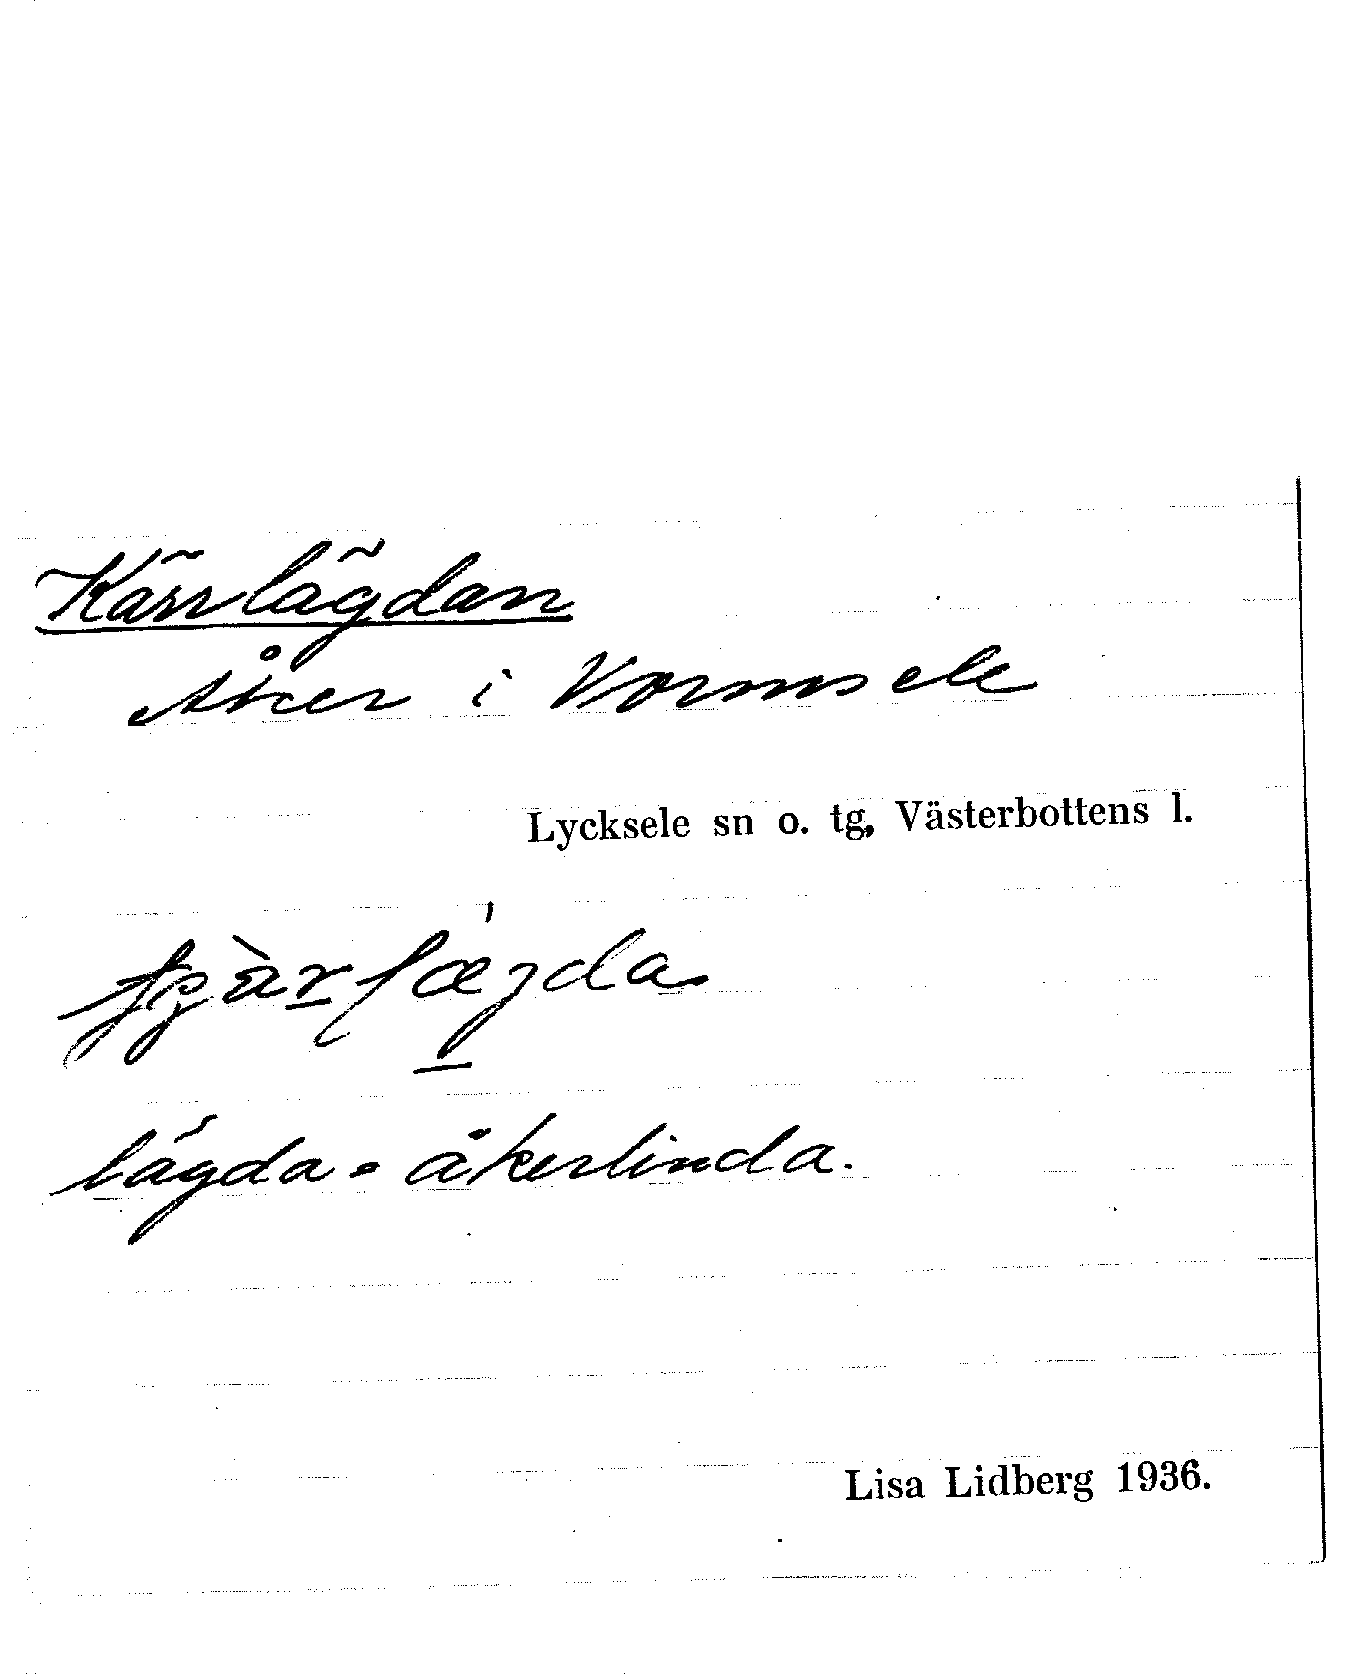 Kärrlägdan
Åker i Vormsele
Lycksele sn o. tg, Västerbottens l.
lägda = åkerlinda.
Lisa Lidberg 1936.